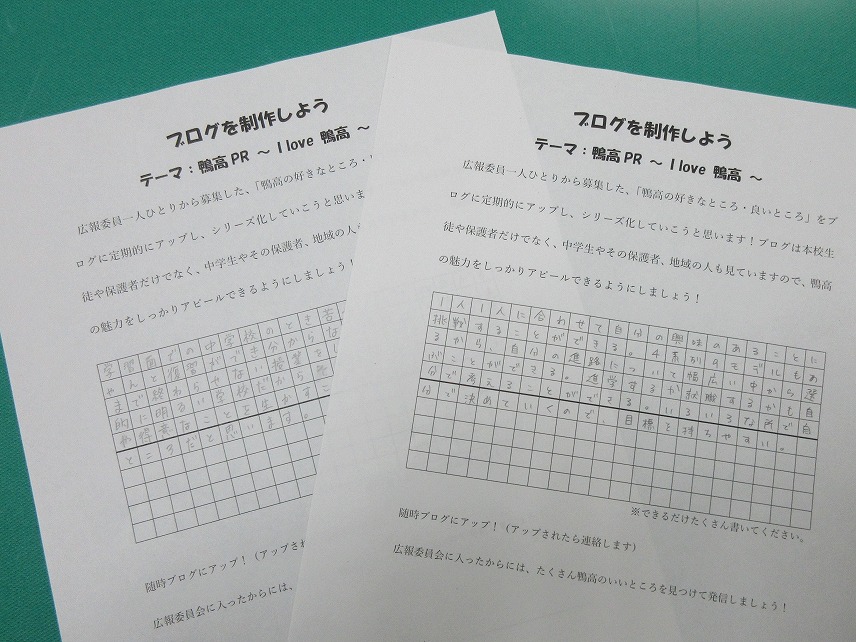 ブログを制作しよう
テーマ：鴨高PR ～ I love 鴨高 ～
広報委員一人ひとりから募集した、「鴨高の好きなところ・
ログに定期的にアップし、シリーズ化していこうと思います
徒や保護者だけでなく、中学生やその保護者、地域の人も
の魅力をしっかりアピールできるようにしましょう！
学習面での中学校のとき苦
ゃんと復習ができ分からな
まで終わらやない授業をし
的に明るい学校だから
や得意なことを生かすこ
ところだと思います。
随時ブログにアップ！（アップされ
広報委員会に入ったからには、
ブログを制作しよう
テーマ：鴨高PR ～ I love 鴨高 ～
広報委員一人ひとりから募集した、「鴨高の好きなところ・良いところ」をブ
ログに定期的にアップし、シリーズ化していこうと思います！ブログは本校生
徒や保護者だけでなく、中学生やその保護者、地域の人も見ていますので、鴨高
の魅力をしっかりアピールできるようにしましょう！
1人1人に合わせて自分の興味のあることに
挑戦することができる。4系列のモデルもあ
るから、自分の進路について幅広い中から選
ぶことができる。進学するか就職するかも自
分で考えることができる。いろいろな所で自
分で決めていくので、目標を持ちやすい。
※できるだけたくさん書いてください。
随時ブログにアップ！（アップされたら連絡します）
広報委員会に入ったからには、たくさん鴨高のいいところを見つけて発信しましょう！